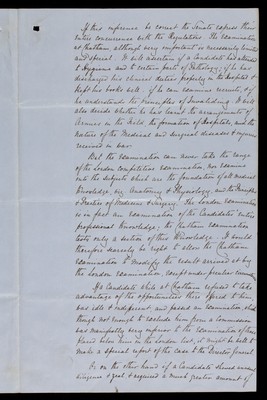 If this inference be correct the Senate express their
entire concurrence with the Regulation. The Examination
at Chatham, although very important is necessarily limited
and special. It will ascertain if a Candidate has attended
to Hygiene and to certain parts of Pathology; if he has
discharged his clinical duties properly in the Hospital &
kept his books well: if he can examine recruits, & if
he understands the principles of Invaliding. It will
also decide whether he has learnt the arrangement of
Armies in the field, the formation of Hospitals, and the
nature of the Medical and surgical diseases & injuries
received in war.
But the examination can never take the range
of the London competitive examination, nor examine
into the subjects which are the foundation of all medical
knowledge, viz Anatomy & Physiology, and the Principles
& Practice of Medicine & Surgery. The London examination
is in fact an examination of the Candidates entire
professional knowledge; the Chatham examination
tests only a section of this knowledge. It would
therefore scarcely be right to allow the Chatham
examination to modify the result arrived at by
the London examination, except under peculiar circumstances.
If a Candidate while at Chatham refused to take
advantage of the opportunities there offered to him,
was idle & indifferent, and passed an examination, which
though not enough to exclude him from a Commission
was manifestly very inferior to the examination of those
placed below him in the London list, it might be well to
make a special report of the case to the Director General.
Or on the other hand if a Candidate shewed unusual
diligence & zeal & acquired a much greater amount of